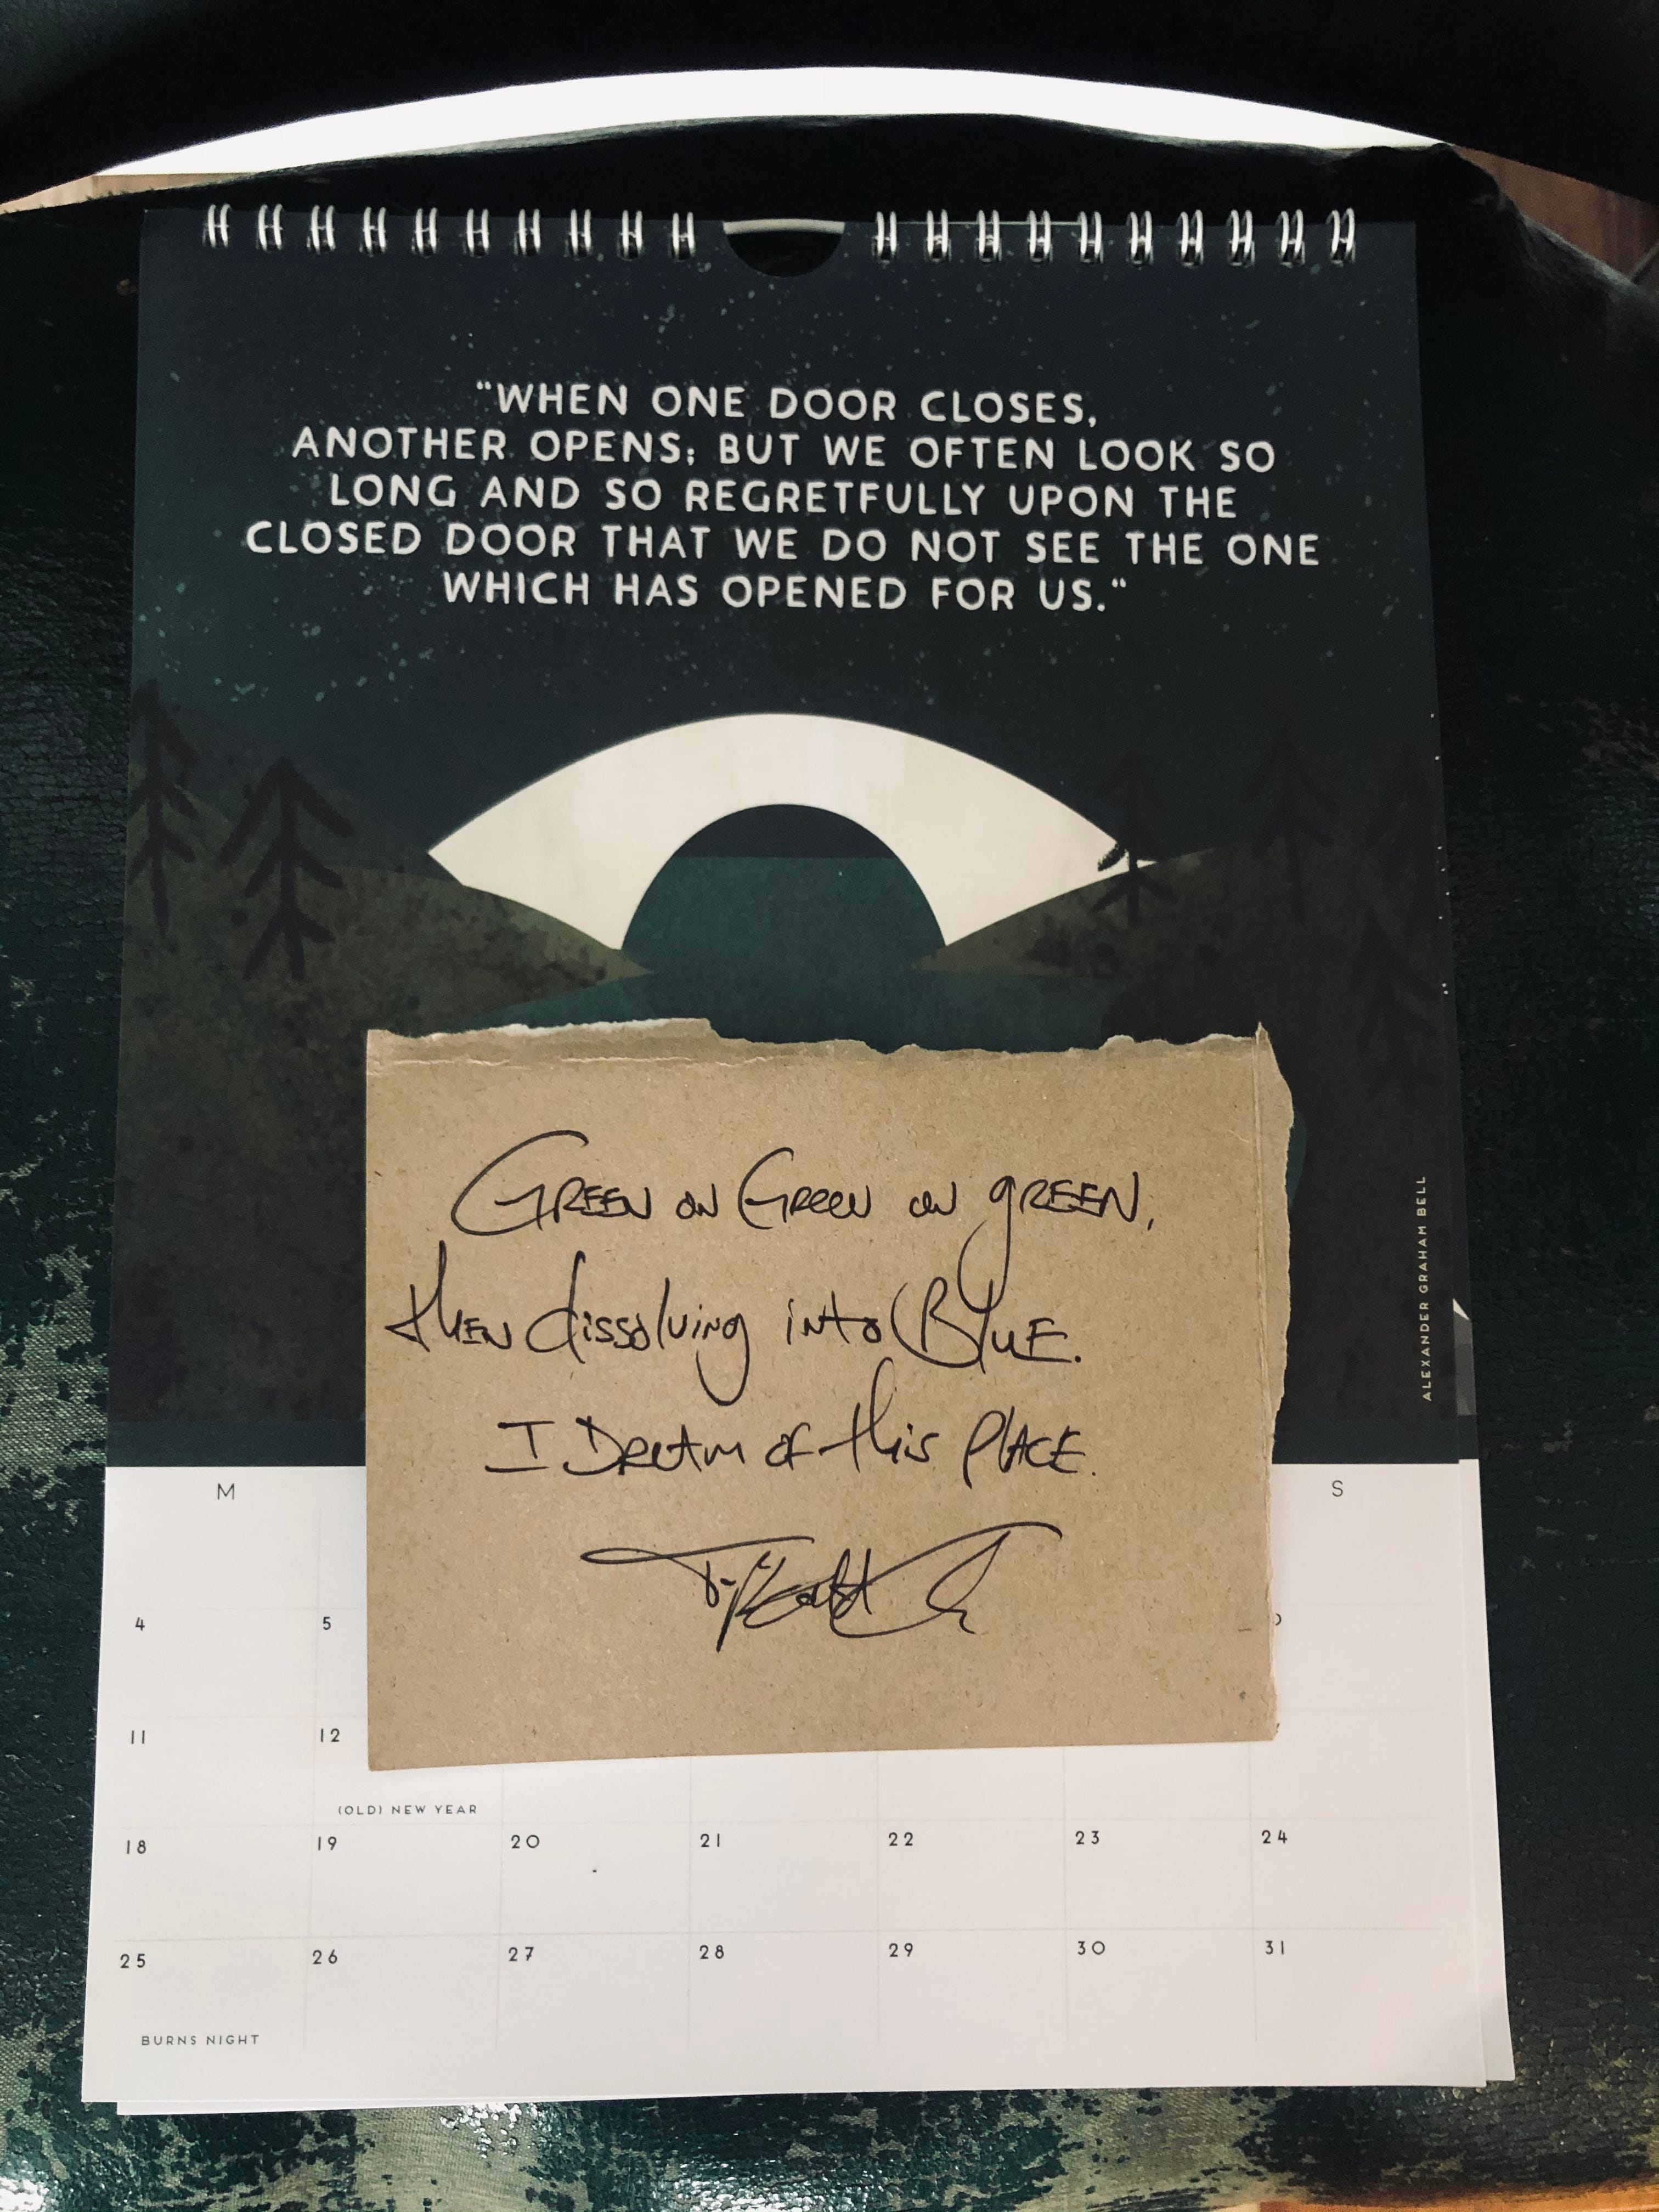 "WHEN ONE DOOR CLOSES,
ANOTHER OPENS; BUT WE OFTEN LOOK SO
LONG AND SO REGRETFULLY UPON THE
CLOSED DOOR THAT WE DO NOT SEE THE ONE
WHICH HAS OPENED FOR US."
ALEXANDER GRAHAM BELL
GREEN ON GREEN ON gREEN,
then dissolving into BLUE.
I DREAM OF this PLACE.
M S
4 5
11 12
(OLD) NEW YEAR
18 19 20 21 22 23 24
25 26 27 28 29 30 31
BURNS NIGHT